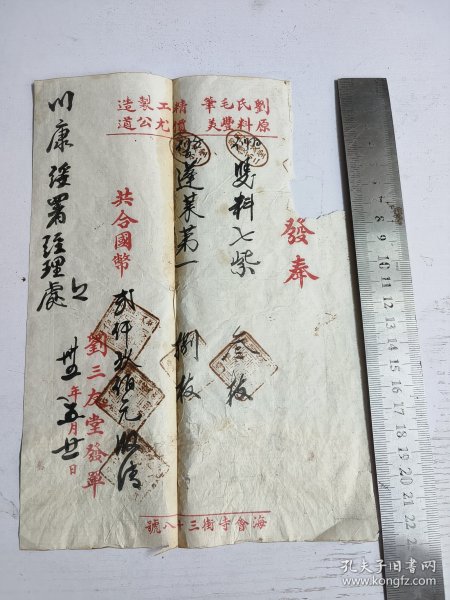 劉氏毛筆 精工製造
原料豐美 價尤公道
發奉
雙料七紫 叁枝
蓬萊第一 捌枝
共合國幣 貳仟 佰元收清
劉三友堂發單
卅五年五月廿日
川康綏署經理處
海會寺街三十八號
7 8 9 10 11 12 13 14 15 16 17 18 19 20 21 22
孔夫子旧书网